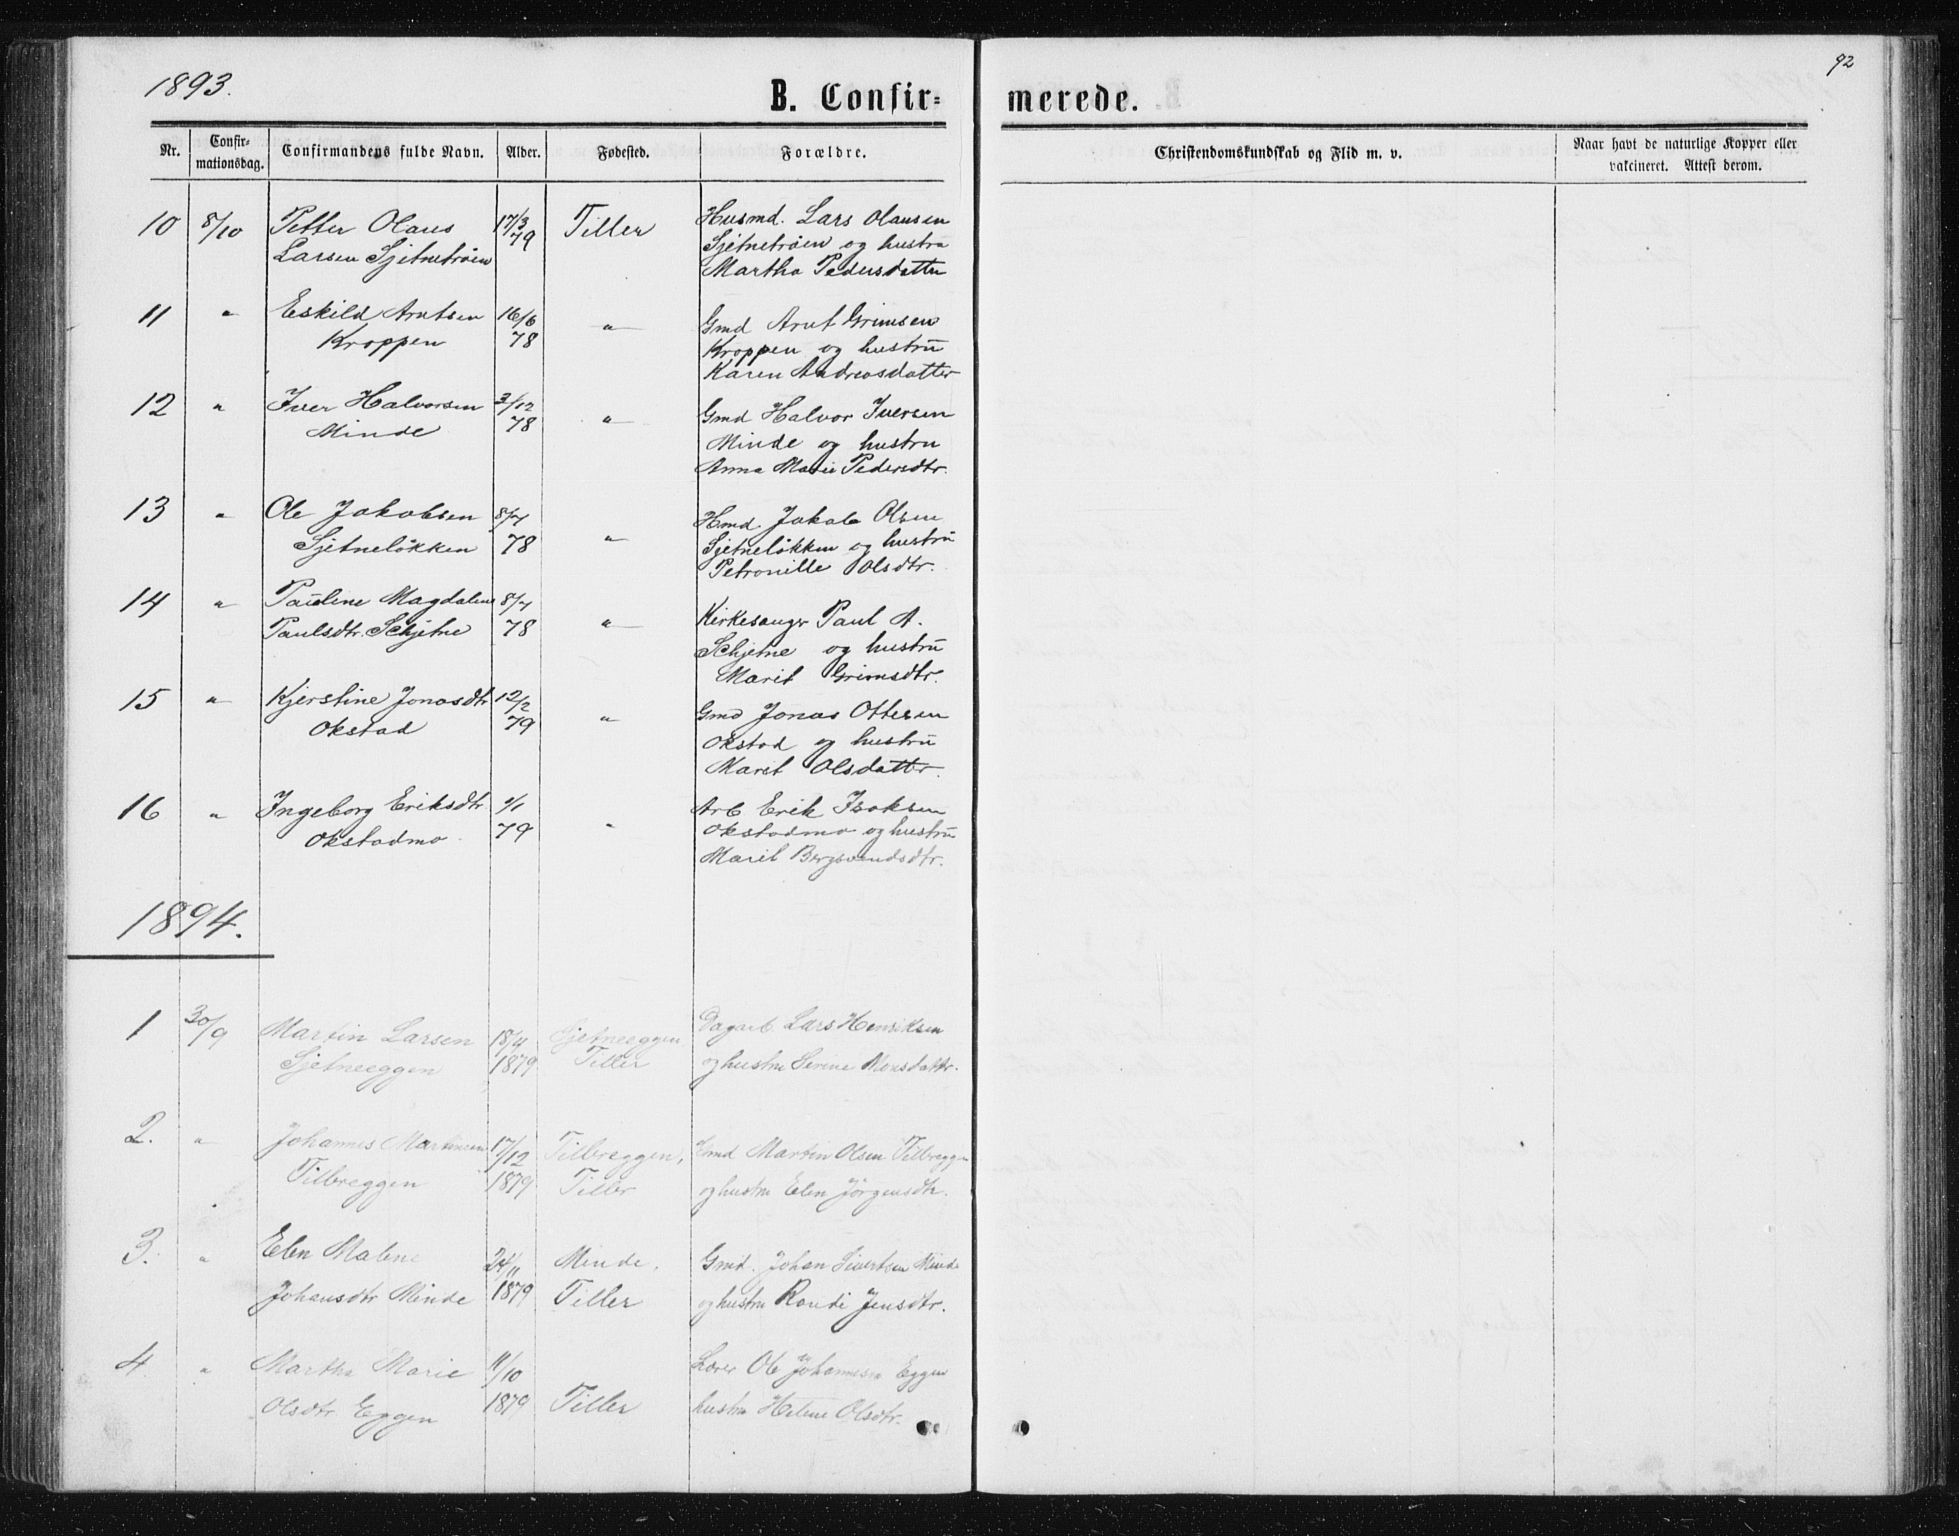 1893.
92
B. Confir-
merede.
Nr.
Confir-
mationsdag.
Confirmandens fulde Navn.
Alder.
Fødested.
Forældre.
Christendomskundskab og Flid m. v.
Naar havt de naturlige Kopper eller
vakcineret. Attest derom.
10 8/10 Petter Olaus 17/3 Tiller Husmd. Lars Olausen
Larsen Sjetnetrøen 79 Sjetnetrøen og hustru
Martha Pedersdatter
11 " Eskild Arntsen 16/6 " Gmd Arnt Grimsen
Kroppen 78 Kroppen og hustru
Karen Andreasdatter
12 " Iver Halvorsen 3/12 " Gmd Halvor Iversen
Minde 78 Minde og hustru
Anna Marie Pedersdtr.
13 " Ole Jakobsen 8/7 " Hmd. Jakob Olsen
Sjetneløkken 78 Sjetneløkken og hustru
Petronille Olsdtr.
14 " Pauline Magdalene 8/7 " Kirkesanger Paul A.
Paulsdtr. Schjetne 78 Schjetne og hustru
Marit Grimsdtr.
15 " Kjerstine Jonasdtr 12/2 " Gmd Jonas Ottesen
Okstad 79 Okstad og hustru
Marit Olsdatter.
16 " Ingeborg Eriksdtr /1 " Arb Erik Isaksen
Okstadmo 79 Okstadmo og hustru
Marit Bergsvendsdtr.
1894.
1 30/9 Martin Larsen 18/4 Sjetneeggen Dagarb. Lars Henriksen
Sjetneeggen 1879 Tiller og hustru Serine Monsdattr.
2. " Johannes Martinsen 17/12 Tilbreggen, Gmd Martin Olsen Tilbreggen
Tilbreggen 1879 Tiller og hustru Elen Jörgensdtr.
3. " Elen Malene 24/11 Minde, Gmd. Johan Sivertsen Minde
Johansdtr Minde 1879 Tiller og hustru Randi Jensdtr.
4. " Martha Marie 11/10 Lærer Ole Johannesen Eggen
Olsdtr Eggen 1879 Tiller hustru Helene Olsdtr.